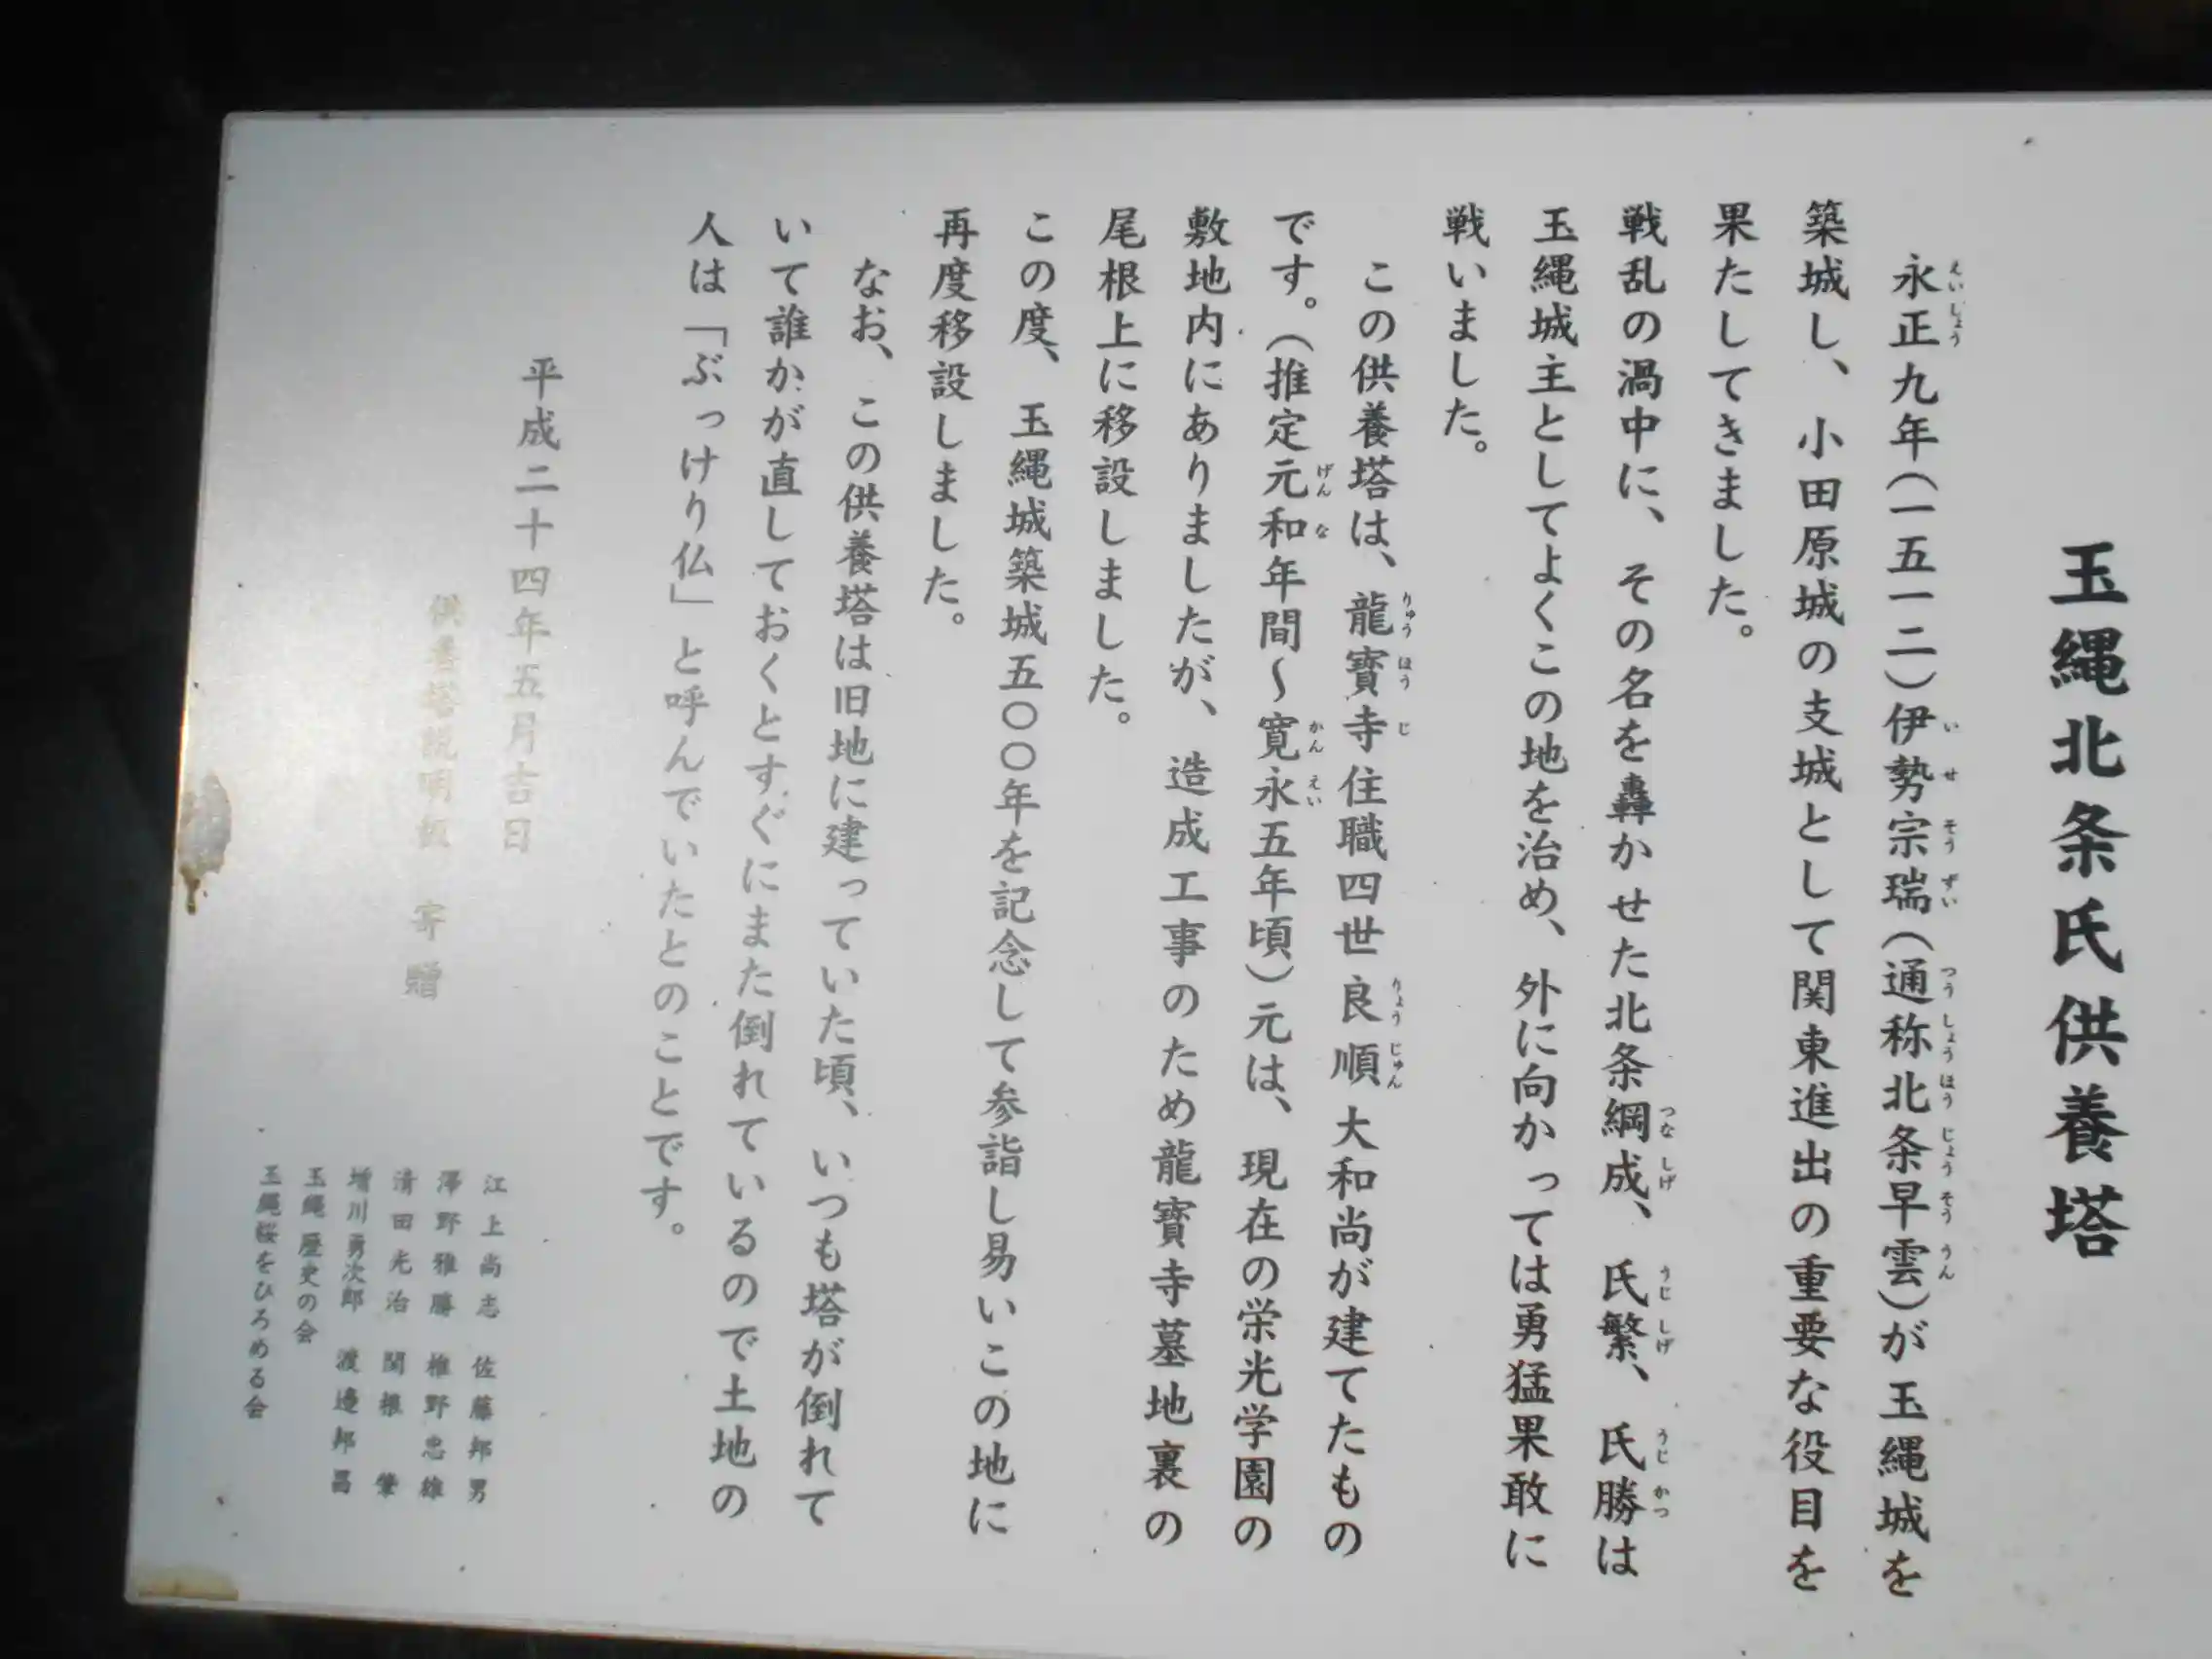 玉縄北条氏供養塔
永正九年（一五一二）伊勢宗瑞（通称北条早雲）が玉縄城を
築城し、小田原城の支城として関東進出の重要な役目を
果たしてきました。
戦乱の渦中に、その名を轟かせた北条綱成、氏繁、氏勝は
玉縄城主としてよくこの地を治め、外に向かっては勇猛果敢に
戦いました。
この供養塔は、龍寳寺住職四世良順大和尚が建てたもの
です。（推定元和年間～寛永五年頃）元は、現在の栄光学園の
敷地内にありましたが、造成工事のため龍寳寺墓地裏の
尾根上に移設しました。
この度、玉縄城築城五〇〇年を記念して参詣し易いこの地に
再度移設しました。
なお、この供養塔は旧地に建っていた頃、いつも塔が倒れて
いて誰かが直しておくとすぐにまた倒れているので土地の
人は「ぶっけり仏」と呼んでいたとのことです。
平成二十四年五月吉日
供養塔説明板 寄贈
江上尚志 佐藤邦男
澤野雅勝 椎野忠雄
清田光治 関根 肇
増川勇次郎 渡邉邦昌
玉縄歴史の会
玉縄桜をひろめる会